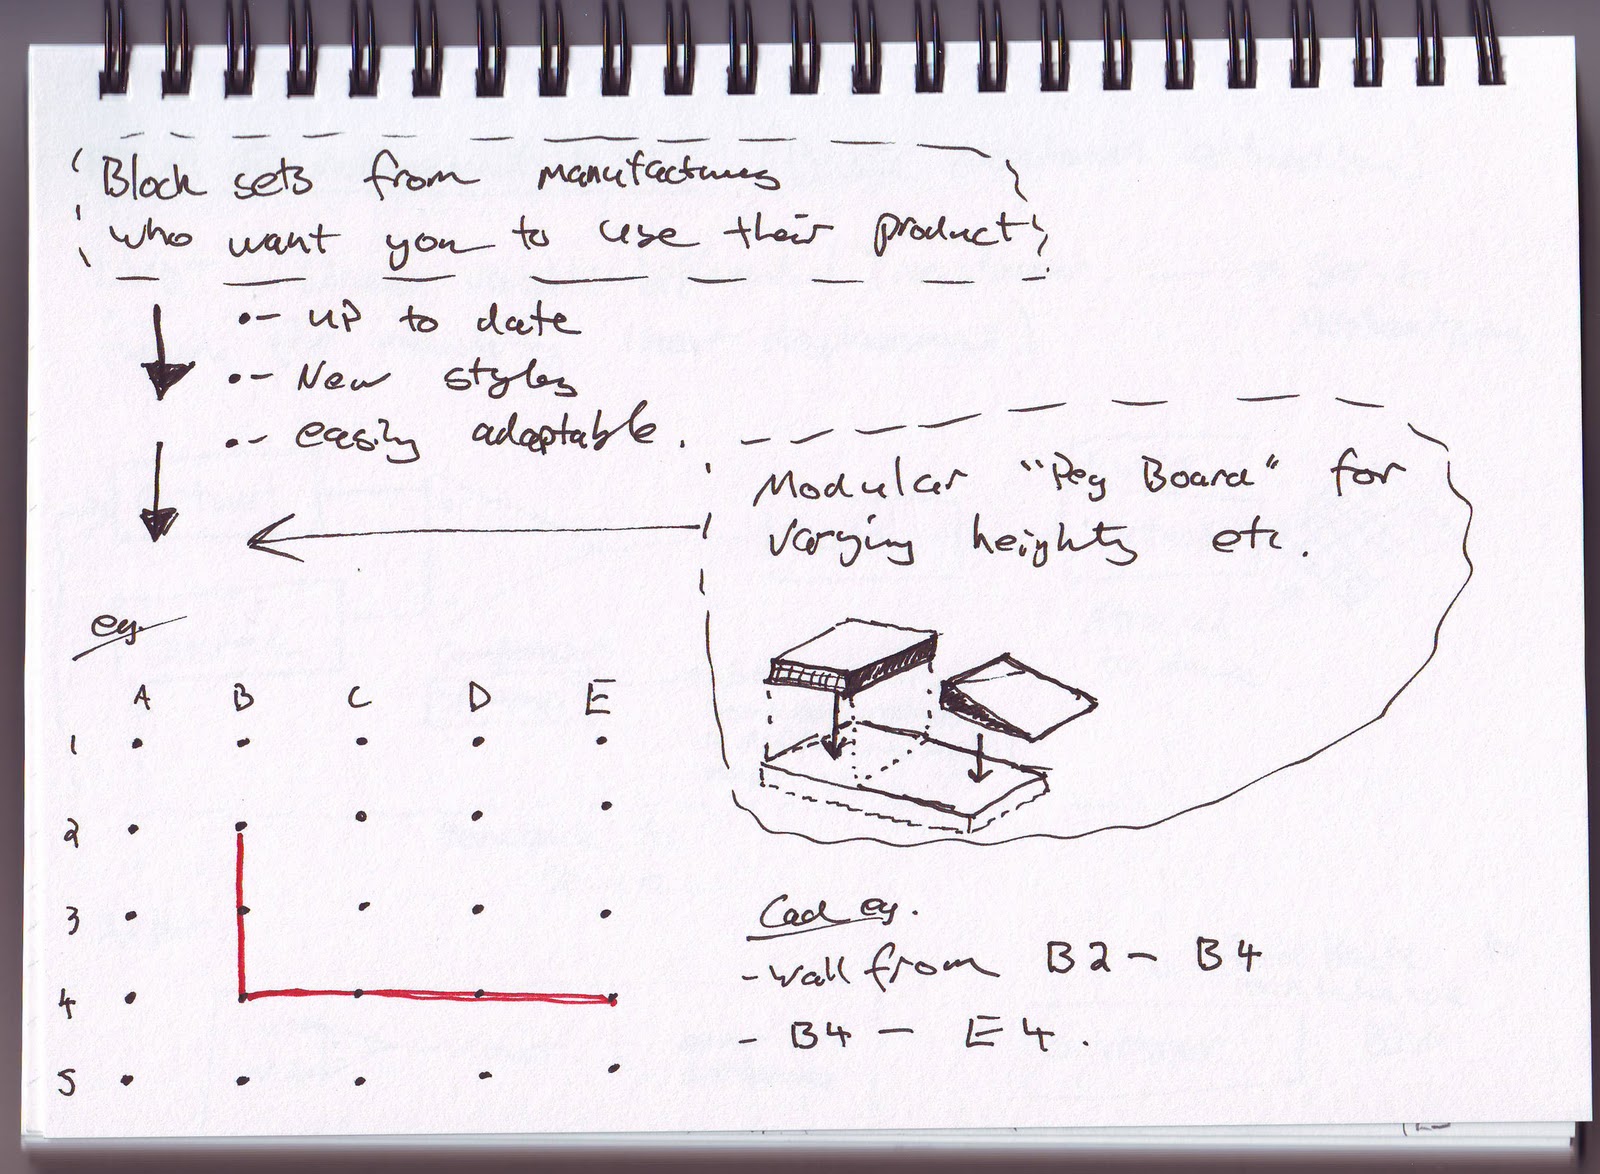 Block sets from manufactures
who want you to use their product
- up to date
- New styles
- easily adaptable.
Modular "Peg Board" for
varying heights etc.
eg.
A B C D E
1
2
3
4
5
Cad eg.
- wall from B2 - B4
- B4 - E4.